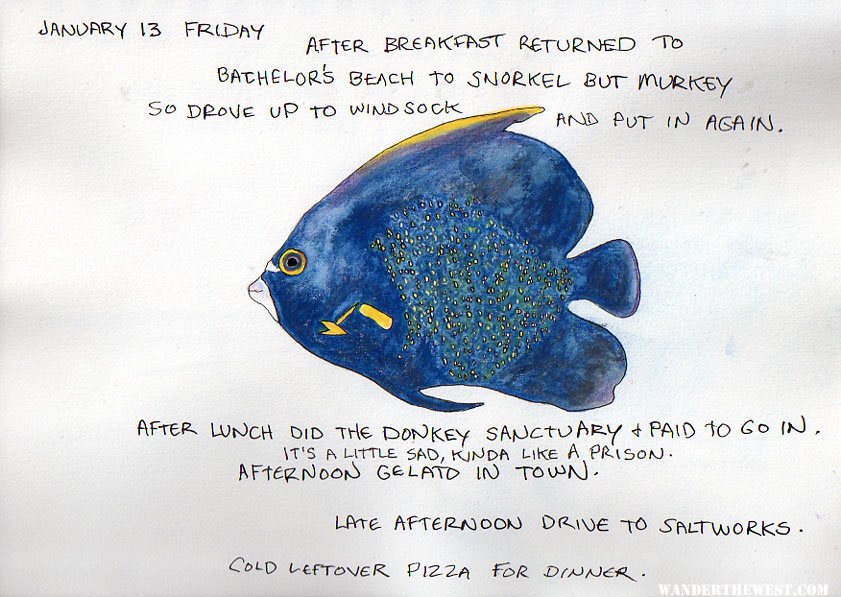 JANUARY 13 FRIDAY
AFTER BREAKFAST RETURNED TO
BACHELOR'S BEACH TO SNORKEL BUT MURKEY
SO DROVE UP TO WINDSOCK
AND PUT IN AGAIN.
AFTER LUNCH DID THE DONKEY SANCTUARY + PAID TO GO IN.
IT'S A LITTLE SAD, KINDA LIKE A PRISON.
AFTERNOON GELATO IN TOWN.
LATE AFTERNOON DRIVE TO SALTWORKS.
COLD LEFTOVER PIZZA FOR DINNER.
WANDERTHEWEST.COM